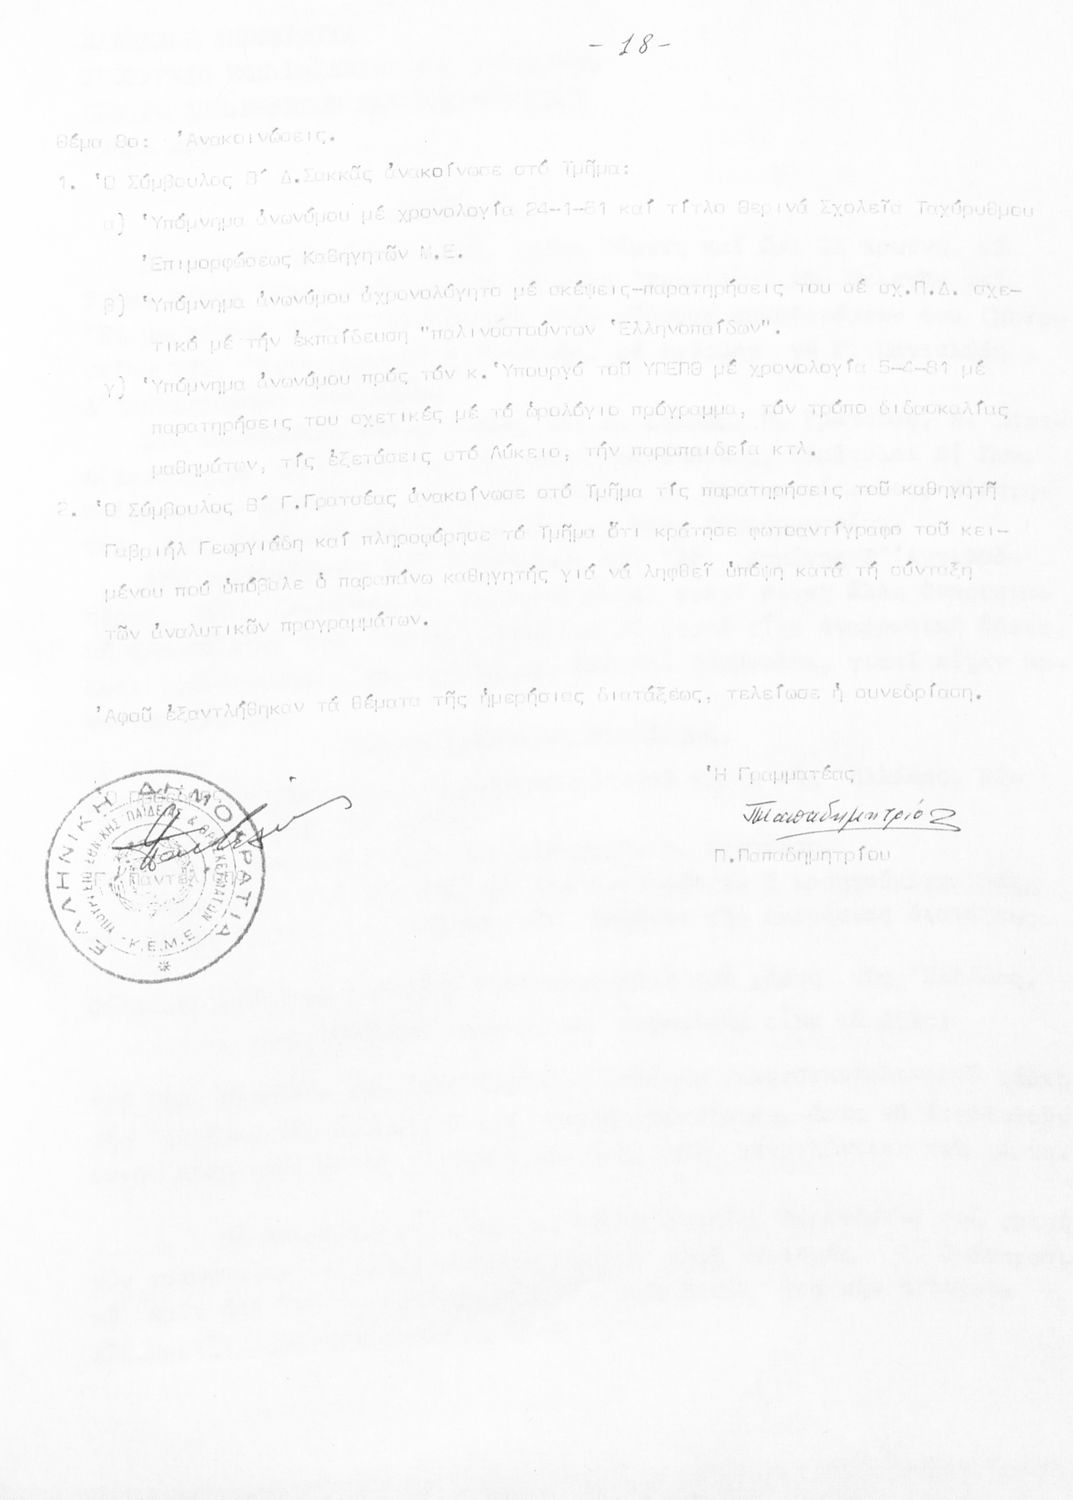 - 18 -
Θέμα 8ο: Ἀνακοινώσεις.
1. Ὁ Σύμβουλος Β΄ Δ.Συκκᾶς ἀνακοίνωσε στό Τμῆμα:
α) Ὑπόμνημα ἀνωνύμου μέ χρονολογία 24-1-81 καί τίτλο Θερινά Σχολεῖα Ταχύρυθμου
Ἐπιμορφώσεως Καθηγητῶν Μ.Ε.
β) Ὑπόμνημα ἀνωνύμου ἀχρονολόγητο μέ σκέψεις-παρατηρήσεις του σέ σχ.Π.Δ. σχε-
τικό μέ τήν ἐκπαίδευση "παλινοστούντων Ἑλληνοπαίδων".
γ) Ὑπόμνημα ἀνωνύμου πρός τόν κ. Ὑπουργό τοῦ ΥΠΕΠΘ μέ χρονολογία 5-4-81 μέ
παρατηρήσεις του σχετικές μέ τό ὡρολόγιο πρόγραμμα, τόν τρόπο διδασκαλίας
μαθημάτων, τίς ἐξετάσεις στό Λύκειο, τήν παραπαιδεία κτλ.
2. Ὁ Σύμβουλος Β΄ Γ.Γρατσέας ἀνακοίνωσε στό Τμῆμα τίς παρατηρήσεις τοῦ καθηγητῆ
Γαβριήλ Γεωργιάδη καί πληροφόρησε τό Τμῆμα ὅτι κράτησε φωτοαντίγραφο τοῦ κει-
μένου πού ὑπόβαλε ὁ παραπάνω καθηγητής γιά νά ληφθεῖ ὑπόψη κατά τή σύνταξη
τῶν ἀναλυτικῶν προγραμμάτων.
Ἀφοῦ ἐξαντλήθηκαν τά θέματα τῆς ἡμερήσιας διατάξεως, τελείωσε ἡ συνεδρίαση.
Ἡ Γραμματέας
Παπαδημητρίου
Π.Παπαδημητρίου
ΕΛΛΗΝΙΚΗ ΔΗΜΟΚΡΑΤΙΑ
ΥΠΟΥΡΓΕΙΟ ΕΘΝΙΚΗΣ ΠΑΙΔΕΙΑΣ & ΘΡΗΣΚΕΥΜΑΤΩΝ
Κ.Ε.Μ.Ε